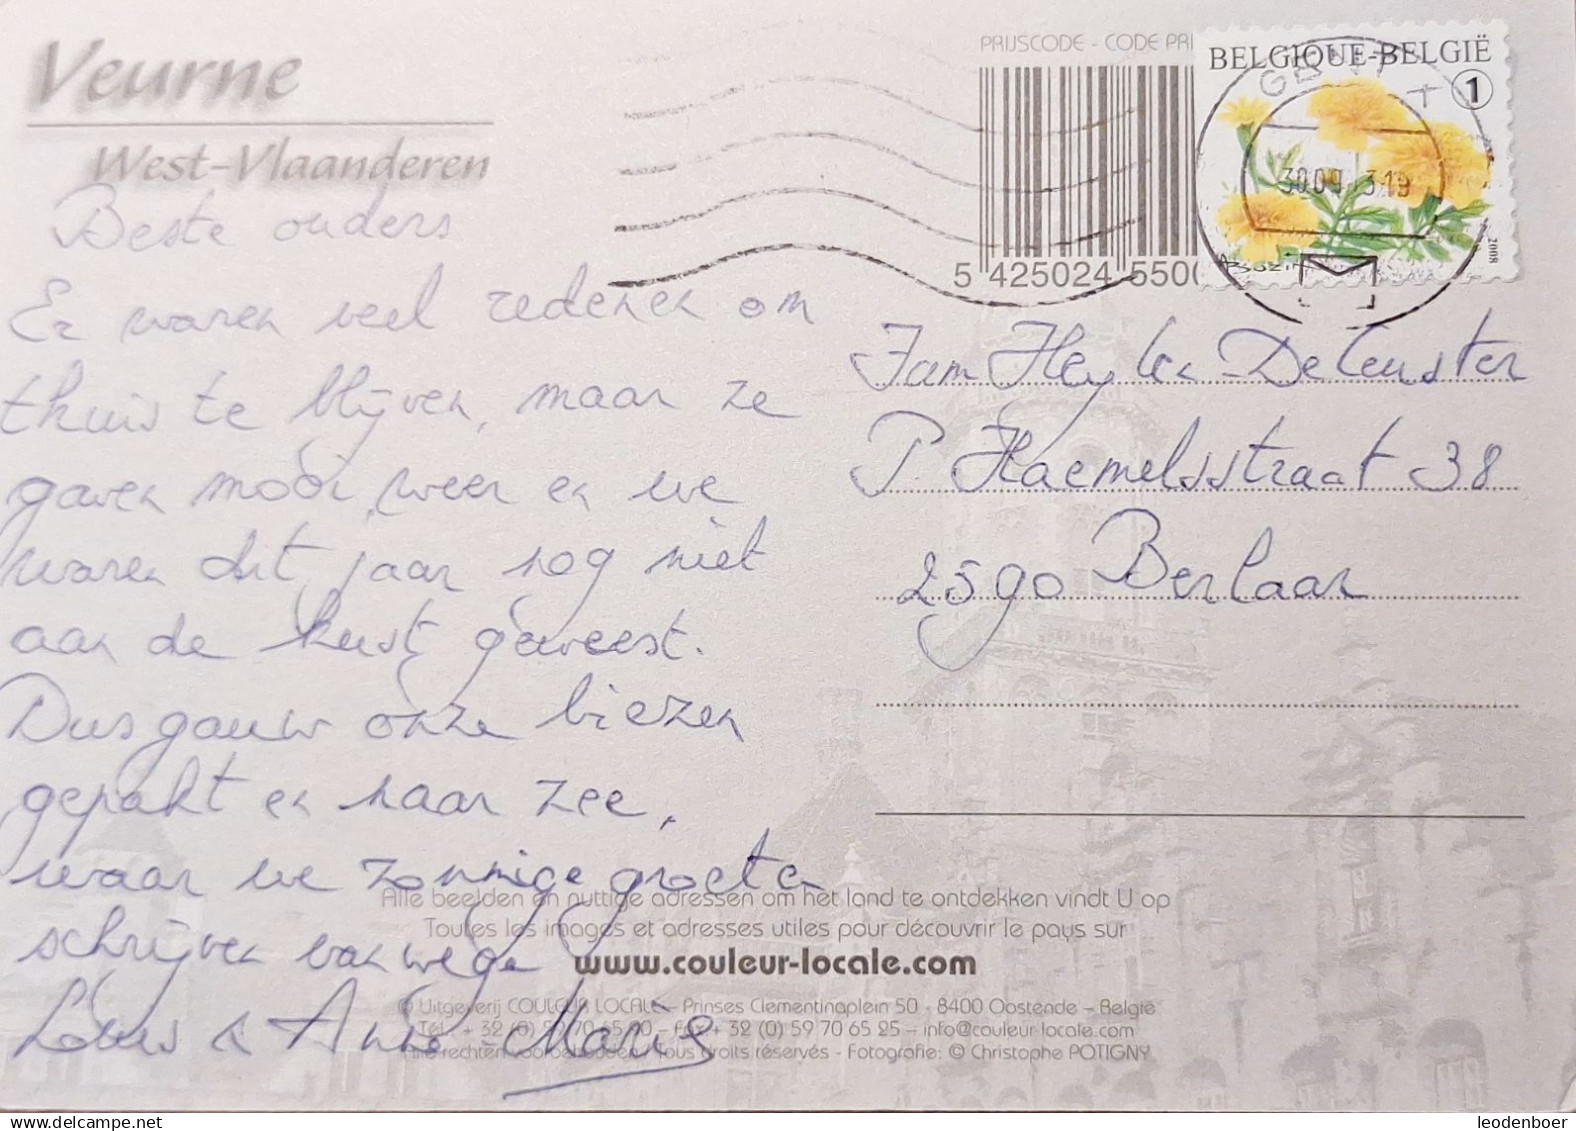 Veurne
West-Vlaanderen
PRIJSCODE - CODE PRI
BELGIQUE-BELGIË
1
GENT X
3009 319
2008
5 425024 5500
Beste ouders
Er waren veel redenen om
thuis te blijven, maar ze
gaven mooi weer en we
waren dit jaar nog niet
aan de kust geweest.
Dus gauw onze biezen
gepakt en naar zee,
waar we zonnige groeten
schrijven vanwege
Louis & Anne-Marie
Fam Heylen-Deleuster
P. Haemelsstraat 38
2590 Berlaar
Alle beelden en nuttige adressen om het land te ontdekken vindt U op
Toutes les images et adresses utiles pour découvrir le pays sur
www.couleur-locale.com
© Uitgeverij COULEUR LOCALE - Prinses Clementinaplein 50 - 8400 Oostende – België
Tél. + 32 (0) 59 70 65 20 – Fax + 32 (0) 59 70 65 25 – info@couleur-locale.com
Alle rechten voorbehouden / Tous droits réservés - Fotografie: © Christophe POTIGNY
leodenboer